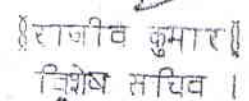 (राजीव कुमार)
विशेष सचिव ।